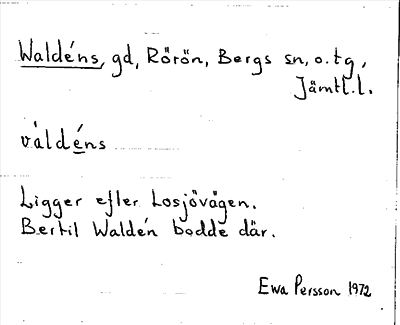 Waldéns, gd, Rörön, Bergs sn, o. tg,
Jämtl.l.
váldéns
Ligger efter Losjövägen.
Bertil Waldén bodde där.
Ewa Persson 1972